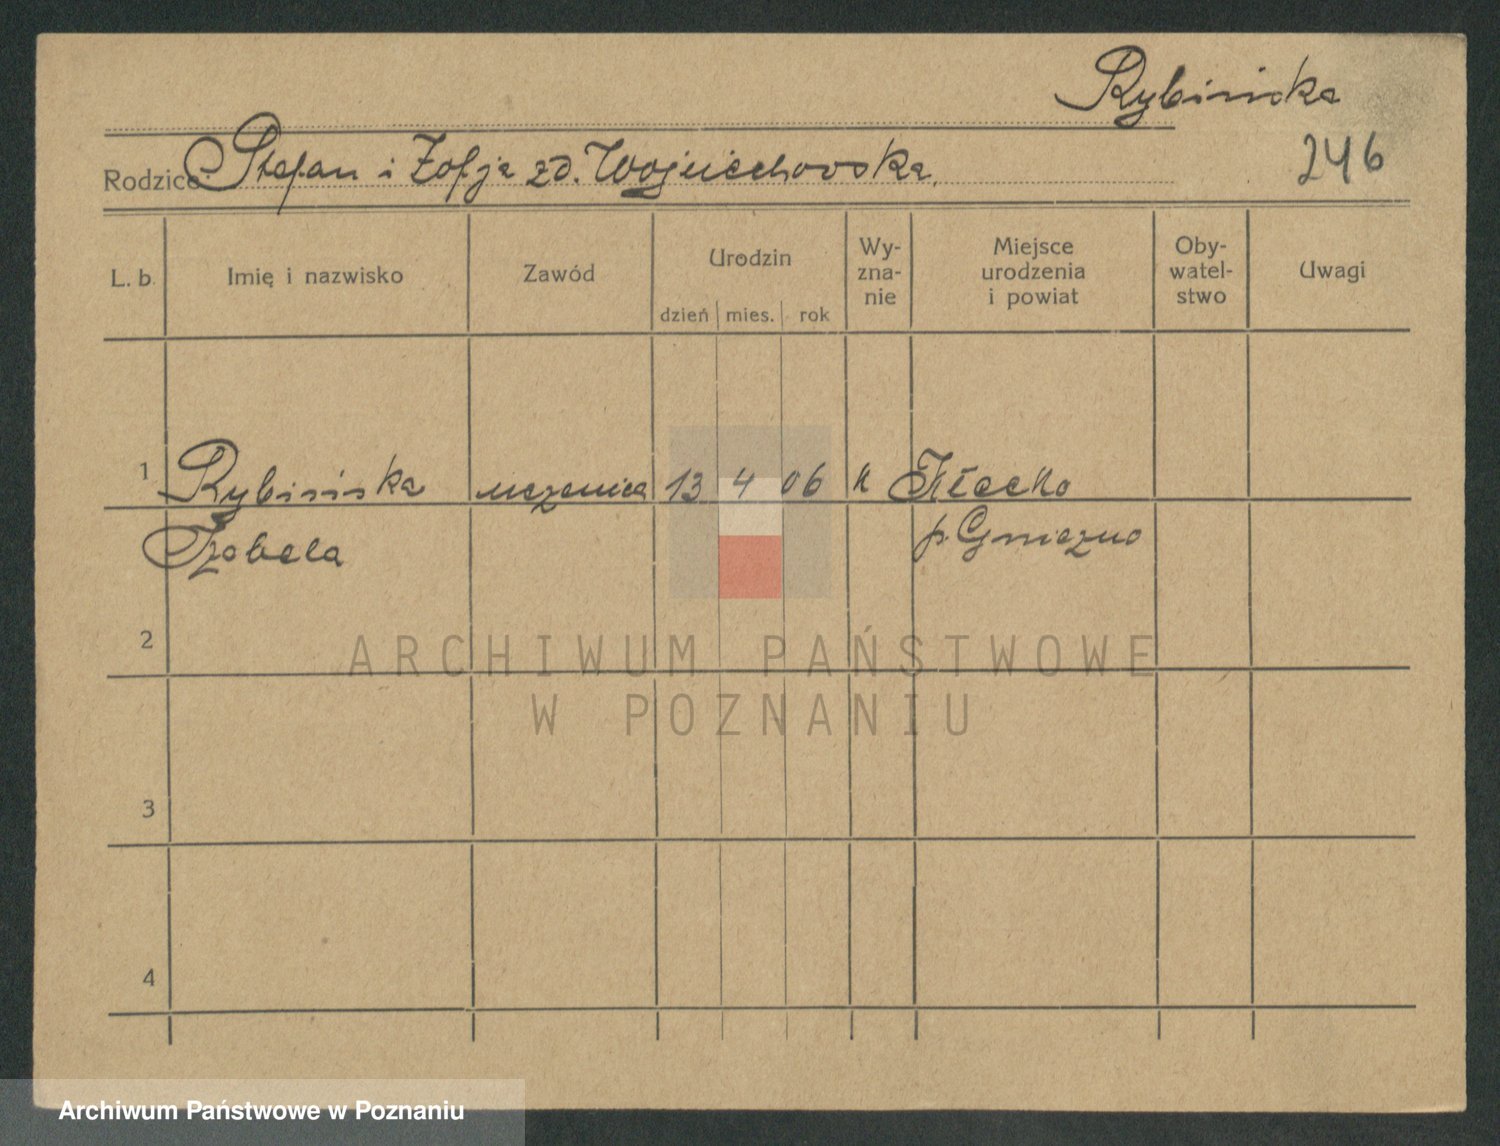 Rybińska
Rodzice Stefan i Zofja zd. Wojciechowska.
246
L. b. Imię i nazwisko Zawód Urodzin dzień mies. rok Wy-zna-nie Miejsce urodzenia i powiat Oby-watel-stwo Uwagi
1 Rybińska uczenica 13 4 06 k Kłecko
Izabela p. Gniezno
2
ARCHIWUM PAŃSTWOWE
W POZNANIU
3
4
Archiwum Państwowe w Poznaniu